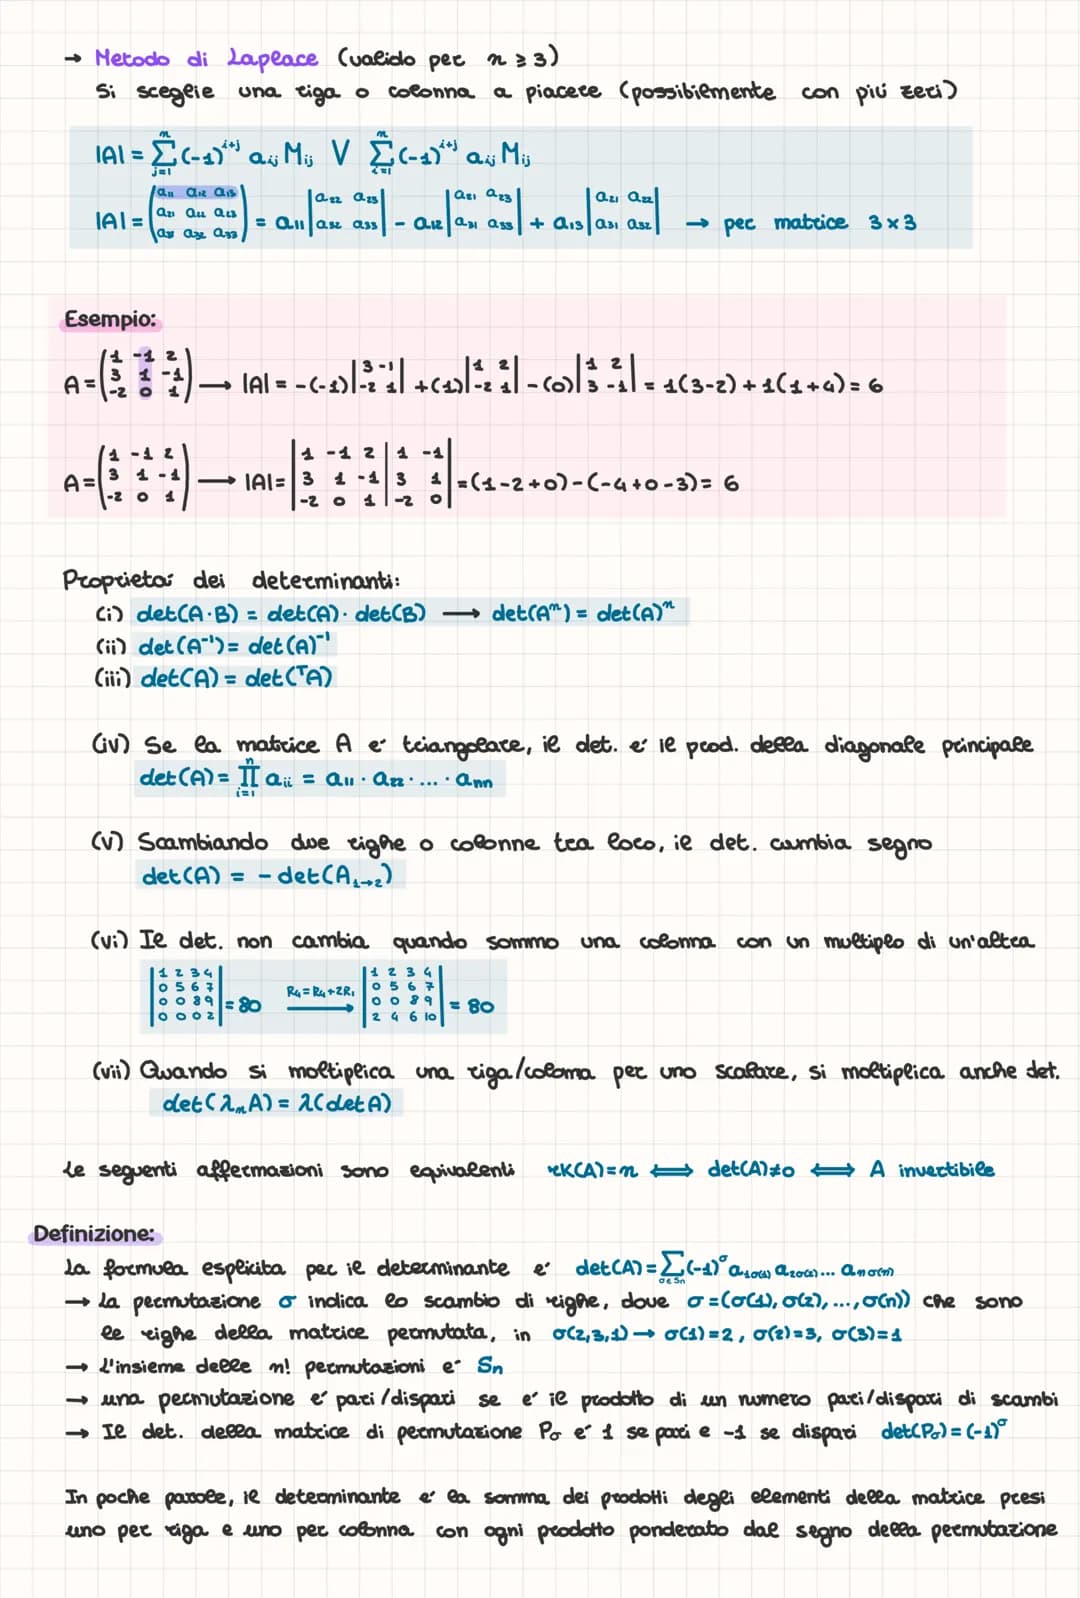 → Metodo di Laplace (valido per n ≥ 3)
Si sceglie una riga o colonna a piacere (possibilmente con più zeri)
|A| = ∑_{j=1}^{n} (-1)^{i+j} a_{ij} M_{ij} ∨ ∑_{i=1}^{n} (-1)^{i+j} a_{ij} M_{ij}
|A| = (a11 a12 a13 / a21 a22 a23 / a31 a32 a33) = a11 |a22 a23 / a32 a33| - a12 |a21 a23 / a31 a33| + a13 |a21 a22 / a31 a32| → per matrice 3×3
Esempio:
A = (1 -1 2 / 3 1 -1 / -2 0 1) → |A| = -(-1) |3 -1 / -2 1| + (1) |1 2 / -2 1| - (0) |1 2 / 3 -1| = 1(3-2) + 1(1+4) = 6
A = (1 -1 2 / 3 1 -1 / -2 0 1) → |A| = |1 -1 2 | 1 -1 / 3 1 -1 | 3 1 / -2 0 1 | -2 0| = (1-2+0) - (-4+0-3) = 6
Proprietà dei determinanti:
(i) det(A·B) = det(A)·det(B) → det(Aⁿ) = det(A)ⁿ
(ii) det(A⁻¹) = det(A)⁻¹
(iii) det(A) = det(ᵀA)
(iv) Se la matrice A e' triangolare, il det. e' il prod. della diagonale principale
det(A) = ∏_{i=1}^{n} a_{ii} = a11 · a22 · ... · ann
(v) Scambiando due righe o colonne tra loro, il det. cambia segno
det(A) = - det(A_{1→2})
(vi) Il det. non cambia quando sommo una colonna con un multiplo di un'altra
|1 2 3 4 / 0 5 6 7 / 0 0 8 9 / 0 0 0 2| = 80 R4 = R4 + 2R1 → |1 2 3 4 / 0 5 6 7 / 0 0 8 9 / 2 4 6 10| = 80
(vii) Quando si moltiplica una riga/colonna per uno scalare, si moltiplica anche det.
det(λₙA) = λ(det A)
Le seguenti affermazioni sono equivalenti rK(A)=n ⟺ det(A)≠0 ⟺ A invertibile
Definizione:
La formula esplicita per il determinante e' det(A) = ∑_{σ∈Sn} (-1)^σ a_{1σ(1)} a_{2σ(2)} ... a_{nσ(n)}
→ La permutazione σ indica lo scambio di righe, dove σ = (σ(1), σ(2), ..., σ(n)) che sono
le righe della matrice permutata, in σ(2,3,1) → σ(1)=2, σ(2)=3, σ(3)=1
→ L'insieme delle n! permutazioni e' Sn
→ una permutazione e' pari/dispari se e' il prodotto di un numero pari/dispari di scambi
→ Il det. della matrice di permutazione Pσ e' 1 se pari e -1 se dispari det(Pσ) = (-1)^σ
In poche parole, il determinante e' la somma dei prodotti degli elementi della matrice presi
uno per riga e uno per colonna con ogni prodotto ponderato dal segno della permutazione